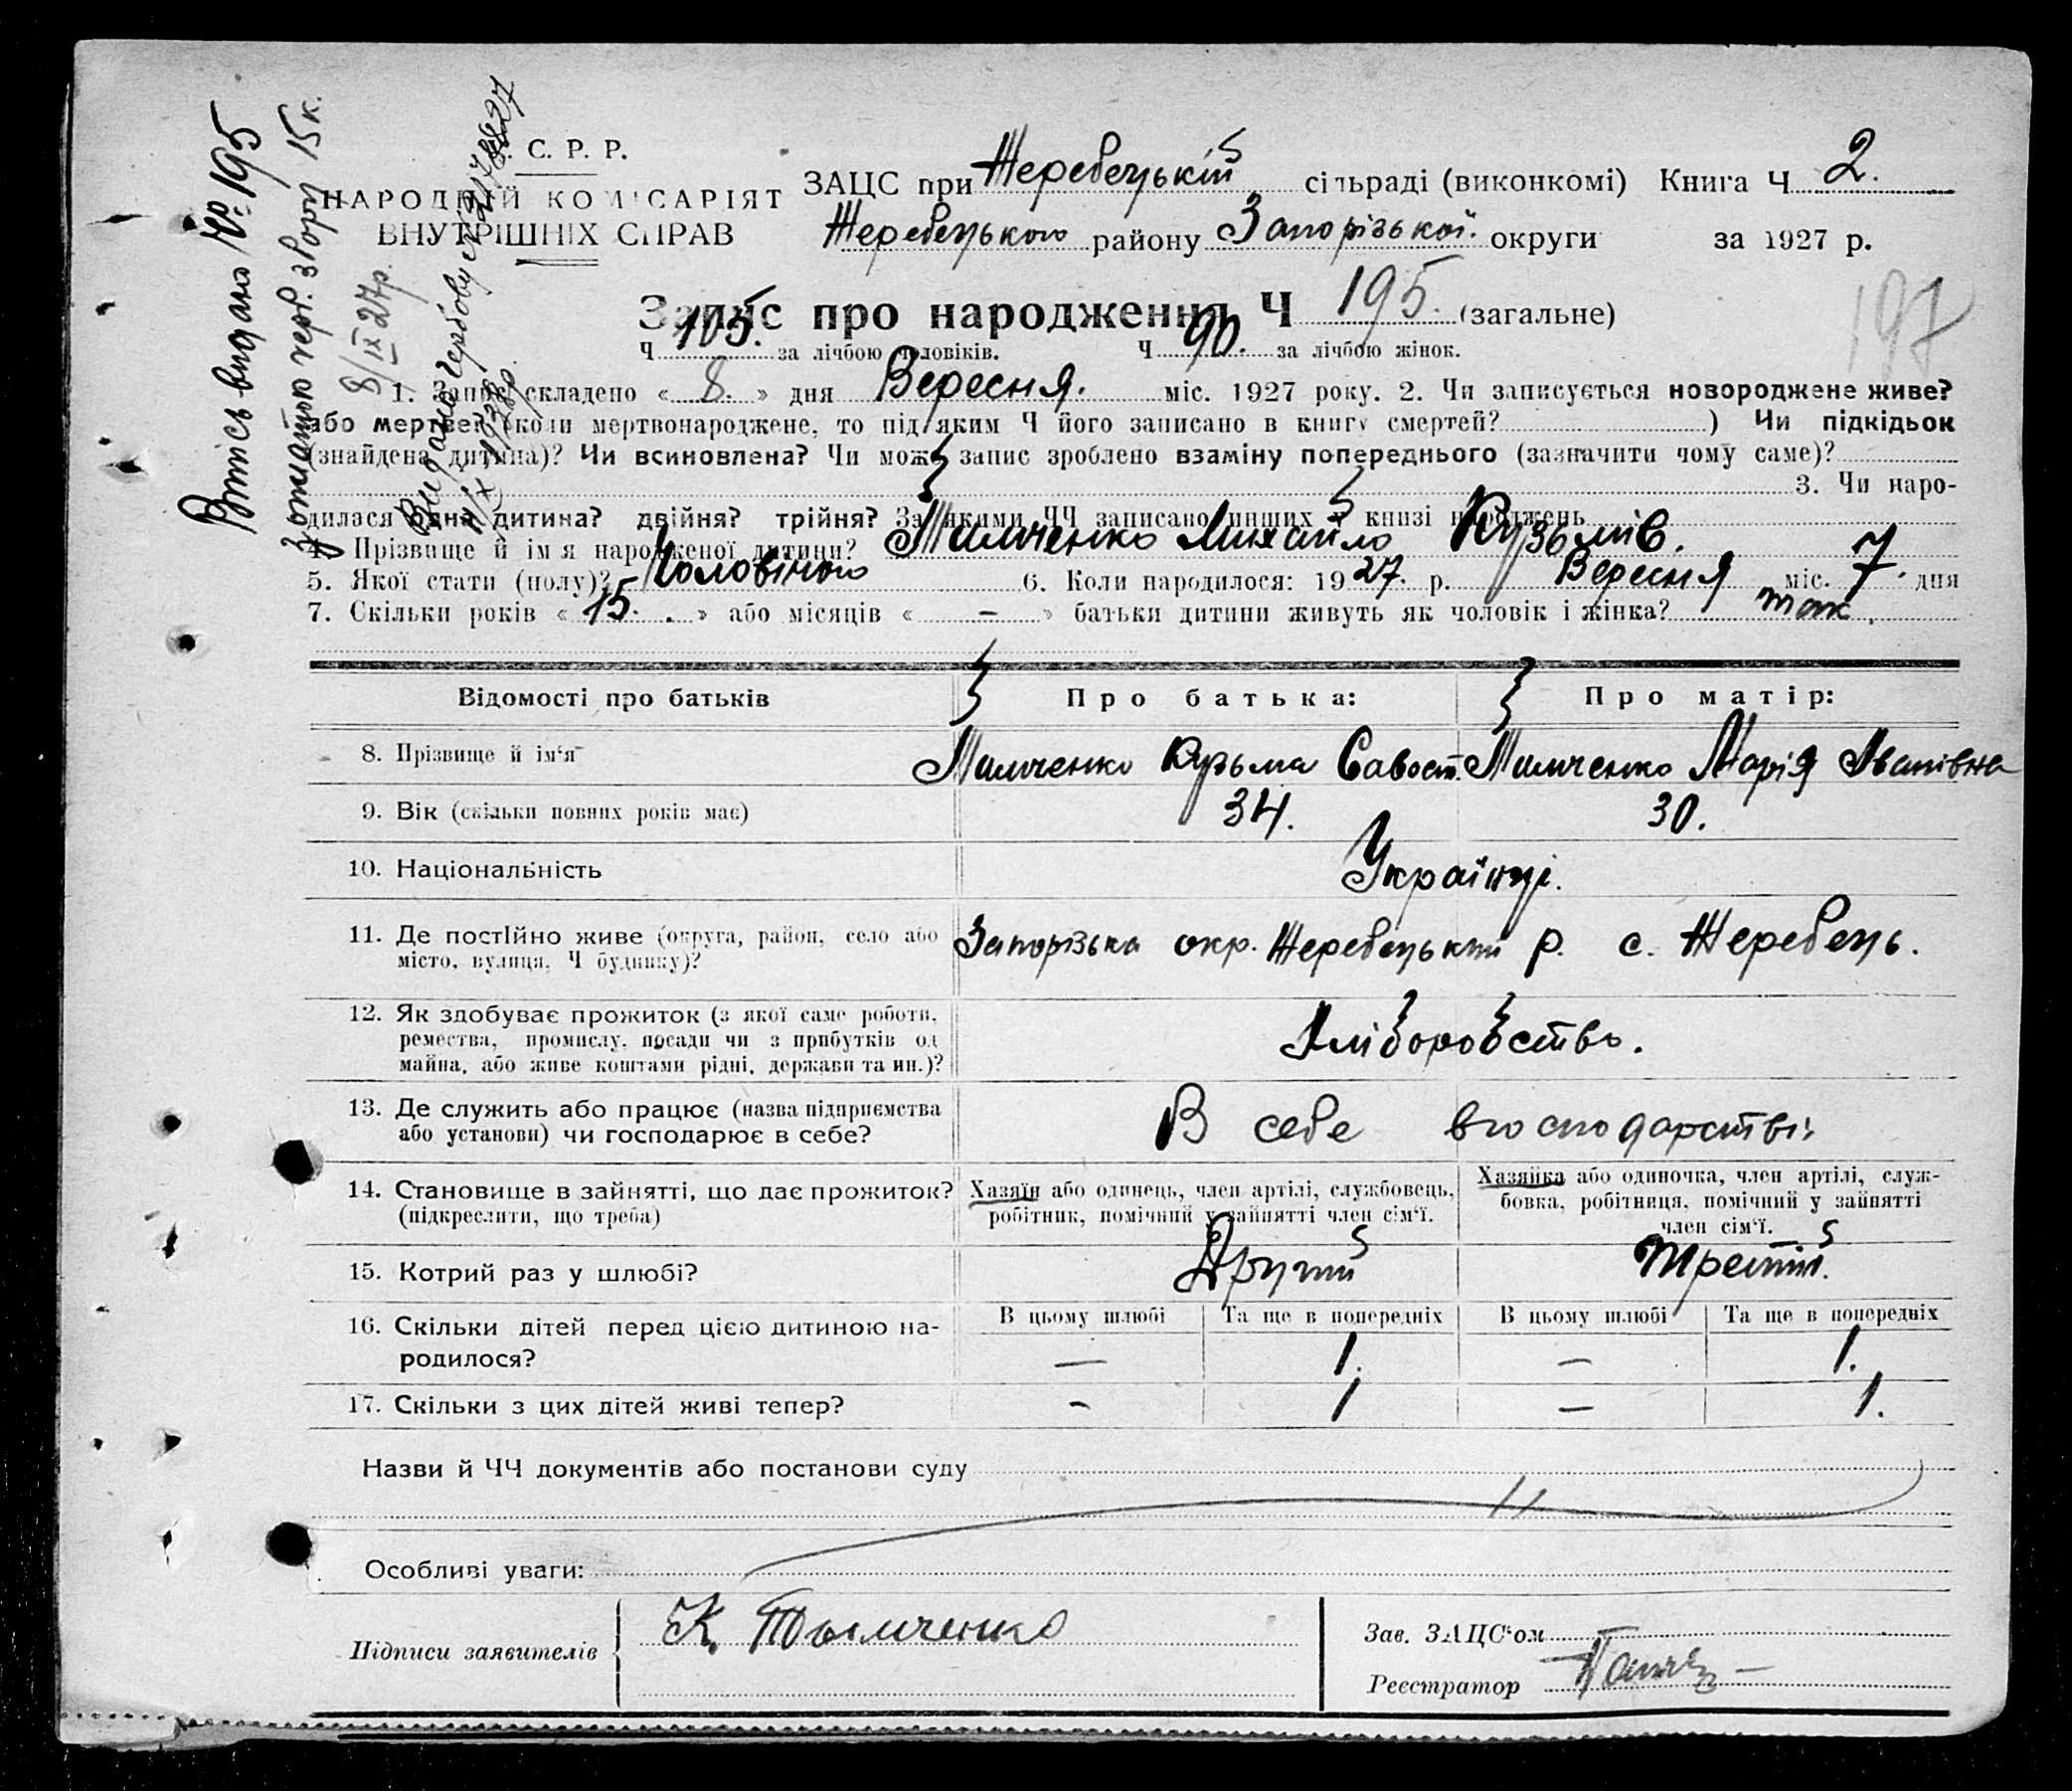 Витісь видано № 195
з оплатою герб. збору 15 к.
8/IX 27р.
Видано
11/X 1938р
С. Р. Р.
НАРОДНІЙ КОМІСАРІЯТ
ВНУТРІШНІХ СПРАВ
ЗАЦС при Жеребецькій сільраді (виконкомі) Книга Ч 2.
Жеребецького району Запорізької округи за 1927 р.
Запис про народження Ч 195. (загальне)
197
Ч 105. за лічбою чоловіків. Ч 90. за лічбою жінок.
1. Запис складено « 8. » дня Вересня. міс. 1927 року. 2. Чи записується новороджене живе?
або мертве? (коли мертвонароджене, то під яким Ч його записано в книгу смертей? ) Чи підкідьок
(знайдена дитина)? Чи всиновлена? Чи може запис зроблено взаміну попереднього (зазначити чому саме)?
3. Чи наро-
дилася одна дитина? двійня? трійня? За якими ЧЧ записано инших в книзі народжень
4. Прізвище й ім'я народженої дитини? Тимченко Михайло Кузьмів.
5. Якої стати (полу)? Чоловічого 6. Коли народилося: 1927. р. Вересня міс. 7. дня
7. Скільки років « 15. » або місяців « – » батьки дитини живуть як чоловік і жінка? так.
Відомості про батьків Про батька: Про матір:
8. Прізвище й ім'я Тимченко Кузьма Савост. Тимченко Марія Іванівна
9. Вік (скільки повних років має) 34. 30.
10. Національність Українці.
11. Де постійно живе (округа, район, село або Запорізька окр. Жеребецький р. с. Жеребець.
місто, вулиця, Ч будинку)?
12. Як здобуває прожиток (з якої саме роботи,
ремества, промислу, посади чи з прибутків од Хліборобство.
майна, або живе коштами рідні, держави та ин.)?
13. Де служить або працює (назва підприємства В себе в господарстві.
або установи) чи господарює в себе?
14. Становище в зайнятті, що дає прожиток? Хазяїн або одинець, член артілі, службовець, Хазяйка або одиночка, член артілі, служ-
(підкреслити, що треба) робітник, помічний у зайнятті член сім'ї. бовка, робітниця, помічний у зайнятті
член сім'ї.
15. Котрий раз у шлюбі? Другий Третій.
16. Скільки дітей перед цією дитиною на- В цьому шлюбі Та ще в попередніх В цьому шлюбі Та ще в попередніх
родилося? – 1. – 1.
17. Скільки з цих дітей живі тепер? – 1 – 1.
Назви й ЧЧ документів або постанови суду
Особливі уваги:
Підписи заявителів К. Тымченко Зав. ЗАЦС'ом
Реєстратор